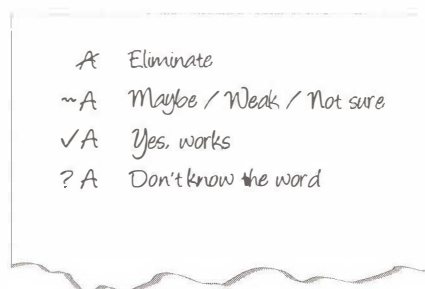 A Eliminate
~A Maybe / Weak / Not sure
✓A Yes, works
?A Don't know the word